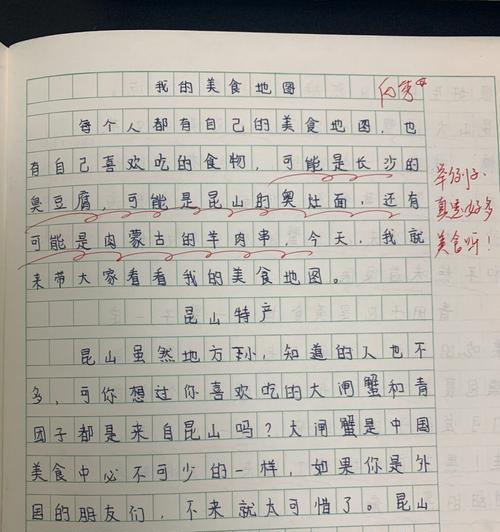 我的美食地图
每个人都有自己的美食地图,也
有自己喜欢吃的食物,可能是长沙的
臭豆腐,可能是昆山的奥灶面,还有
可能是内蒙古的羊肉串,今天,我就
来带大家看看我的美食地图。
昆山特产
昆山虽然地方小,知道的人也不
多,可你想过你喜欢吃的大闸蟹和青
团子都是来自昆山吗?大闸蟹是中国
美食中必不可少的一样,如果你是外
国的朋友们,不来就太可惜了。昆山
举例子,
真是好多
美食呀!